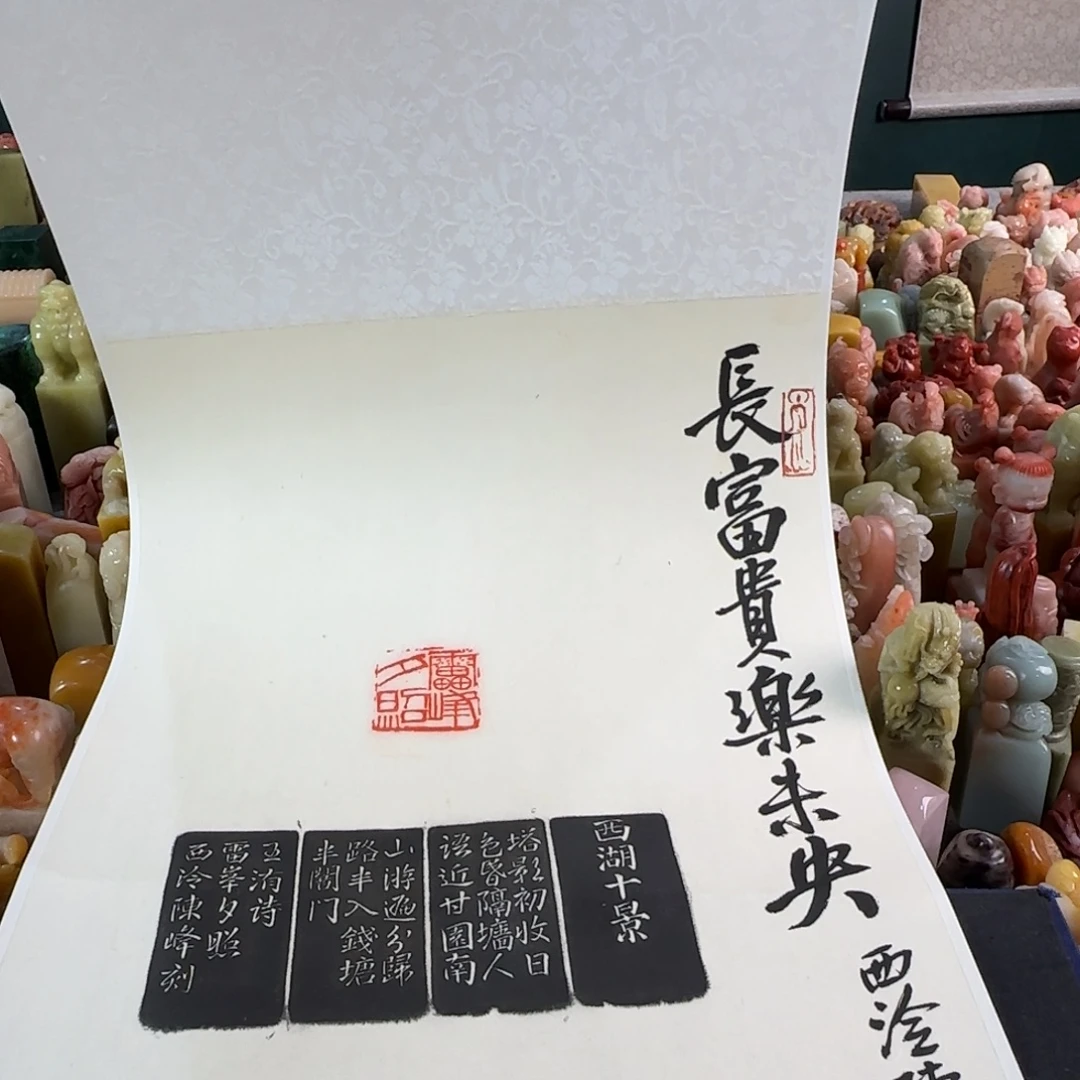 長富貴樂未央
西泠
雷峰
夕照
西湖十景
塔影初收日
色昏隔墻人
语近甘園南
山游遍分歸
路半入錢塘
半闇门
王洧诗
雷峯夕照
西泠陳峰刻